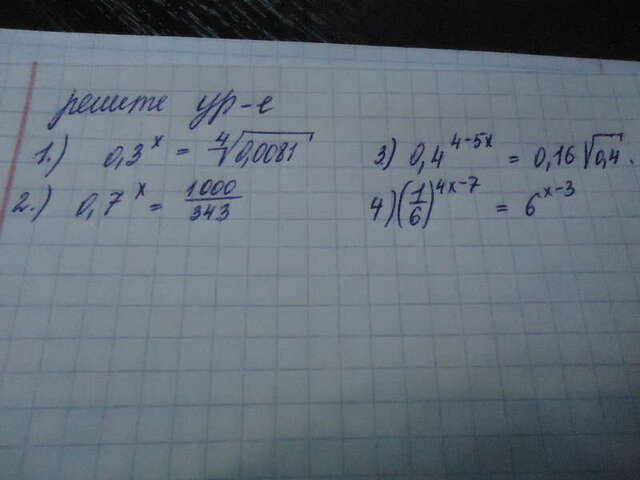 решите ур-е
1.) 0,3^x = ∜0,0081
2.) 0,7^x = 1000/343
3) 0,4^(4-5x) = 0,16√0,4.
4) (1/6)^(4x-7) = 6^(x-3)